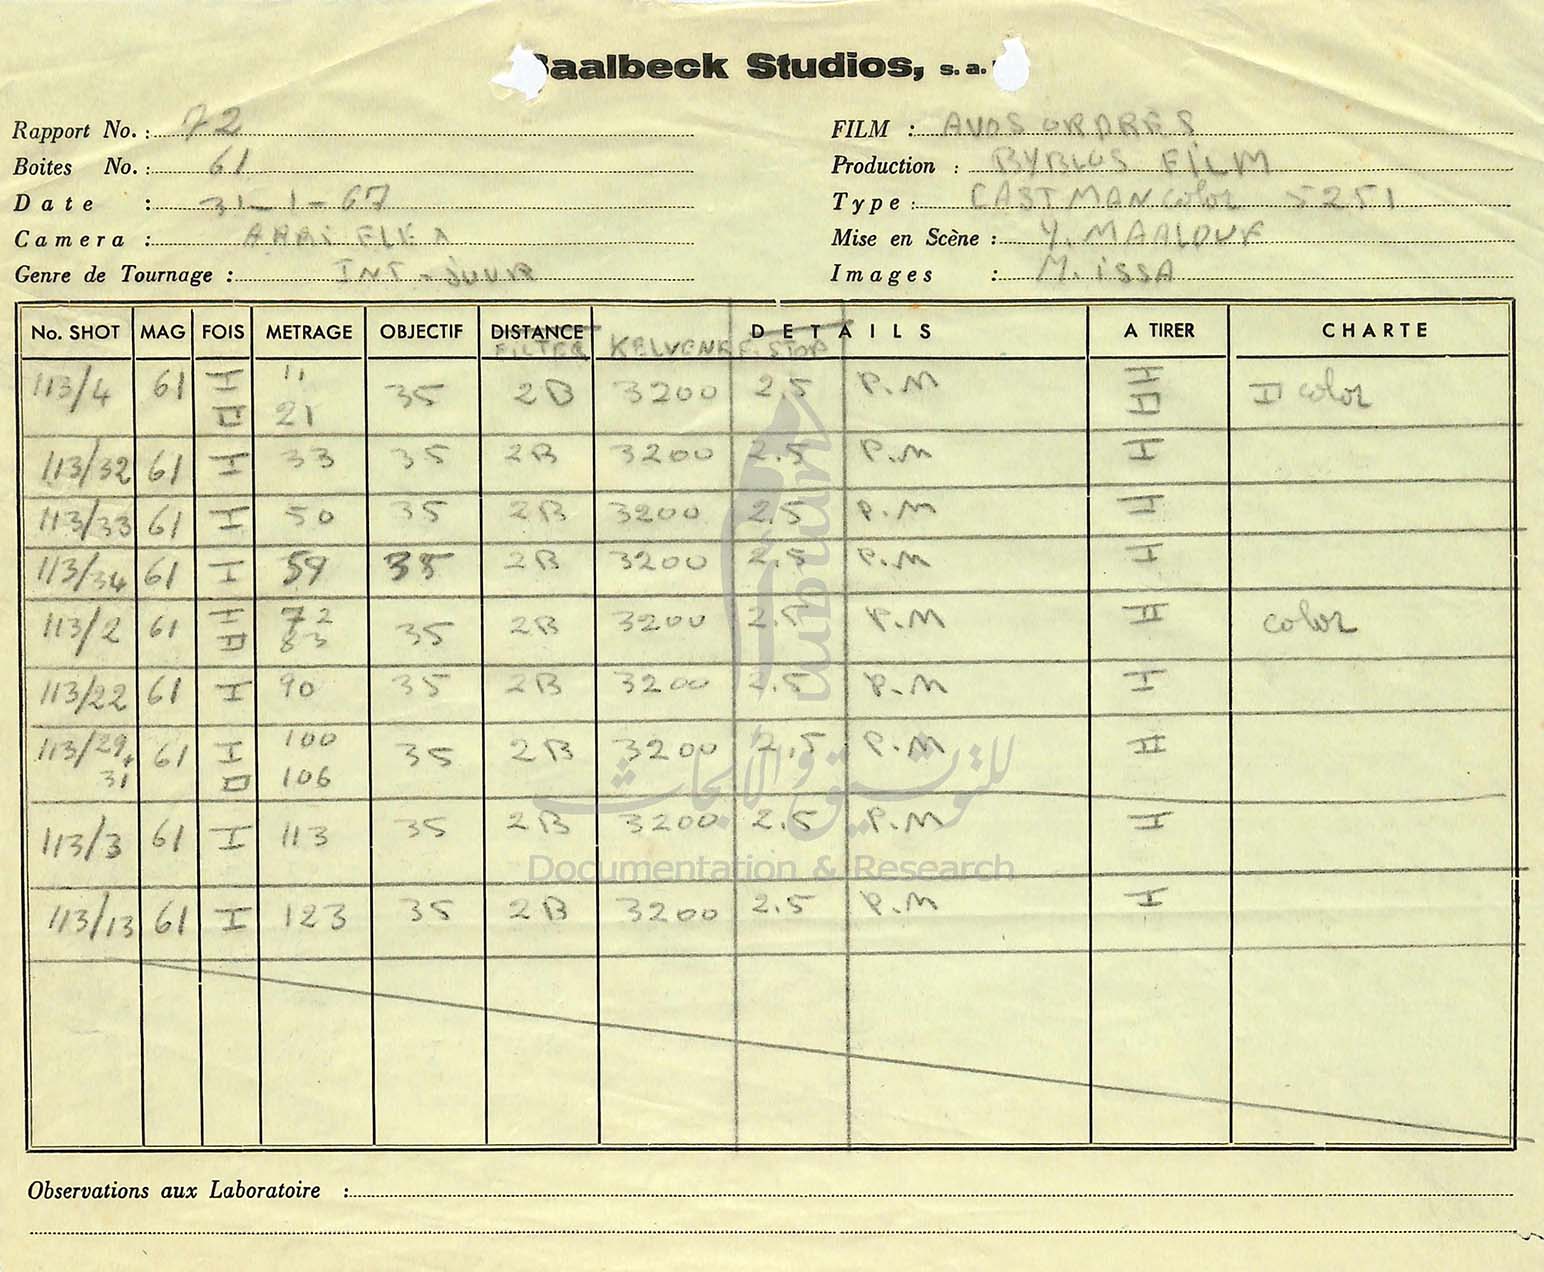 Baalbeck Studios, s.a.
Rapport No. : 72
Boites No. : 61
Date : 31-1-67
Camera : ARRiFLEX
Genre de Tournage : INT-JOUR
FILM : AVOS ORDRES
Production : BYBLOS FILM
Type : EASTMANcolor 5251
Mise en Scène : Y. MAALOUF
Images : M. iSSA
No. SHOT MAG FOIS METRAGE OBJECTIF DISTANCE DETAILS A TIRER CHARTE
FILTER KELVENK F. STOP
113/4 61 I 11 35 2B 3200 2.5 P.M I I color
II 21 II
113/32 61 I 33 35 2B 3200 2.5 P.M I
113/33 61 I 50 35 2B 3200 2.5 P.M I
113/34 61 I 59 35 2B 3200 2.5 P.M I
113/2 61 I 72 35 2B 3200 2.5 P.M II color
II 83
113/22 61 I 90 35 2B 3200 2.5 P.M I
113/29+ 61 I 100 35 2B 3200 2.5 P.M II
31 II 106
113/3 61 I 113 35 2B 3200 2.5 P.M I
113/13 61 I 123 35 2B 3200 2.5 P.M I
umam
للتوثيق والأبحاث
Documentation & Research
Observations aux Laboratoire :